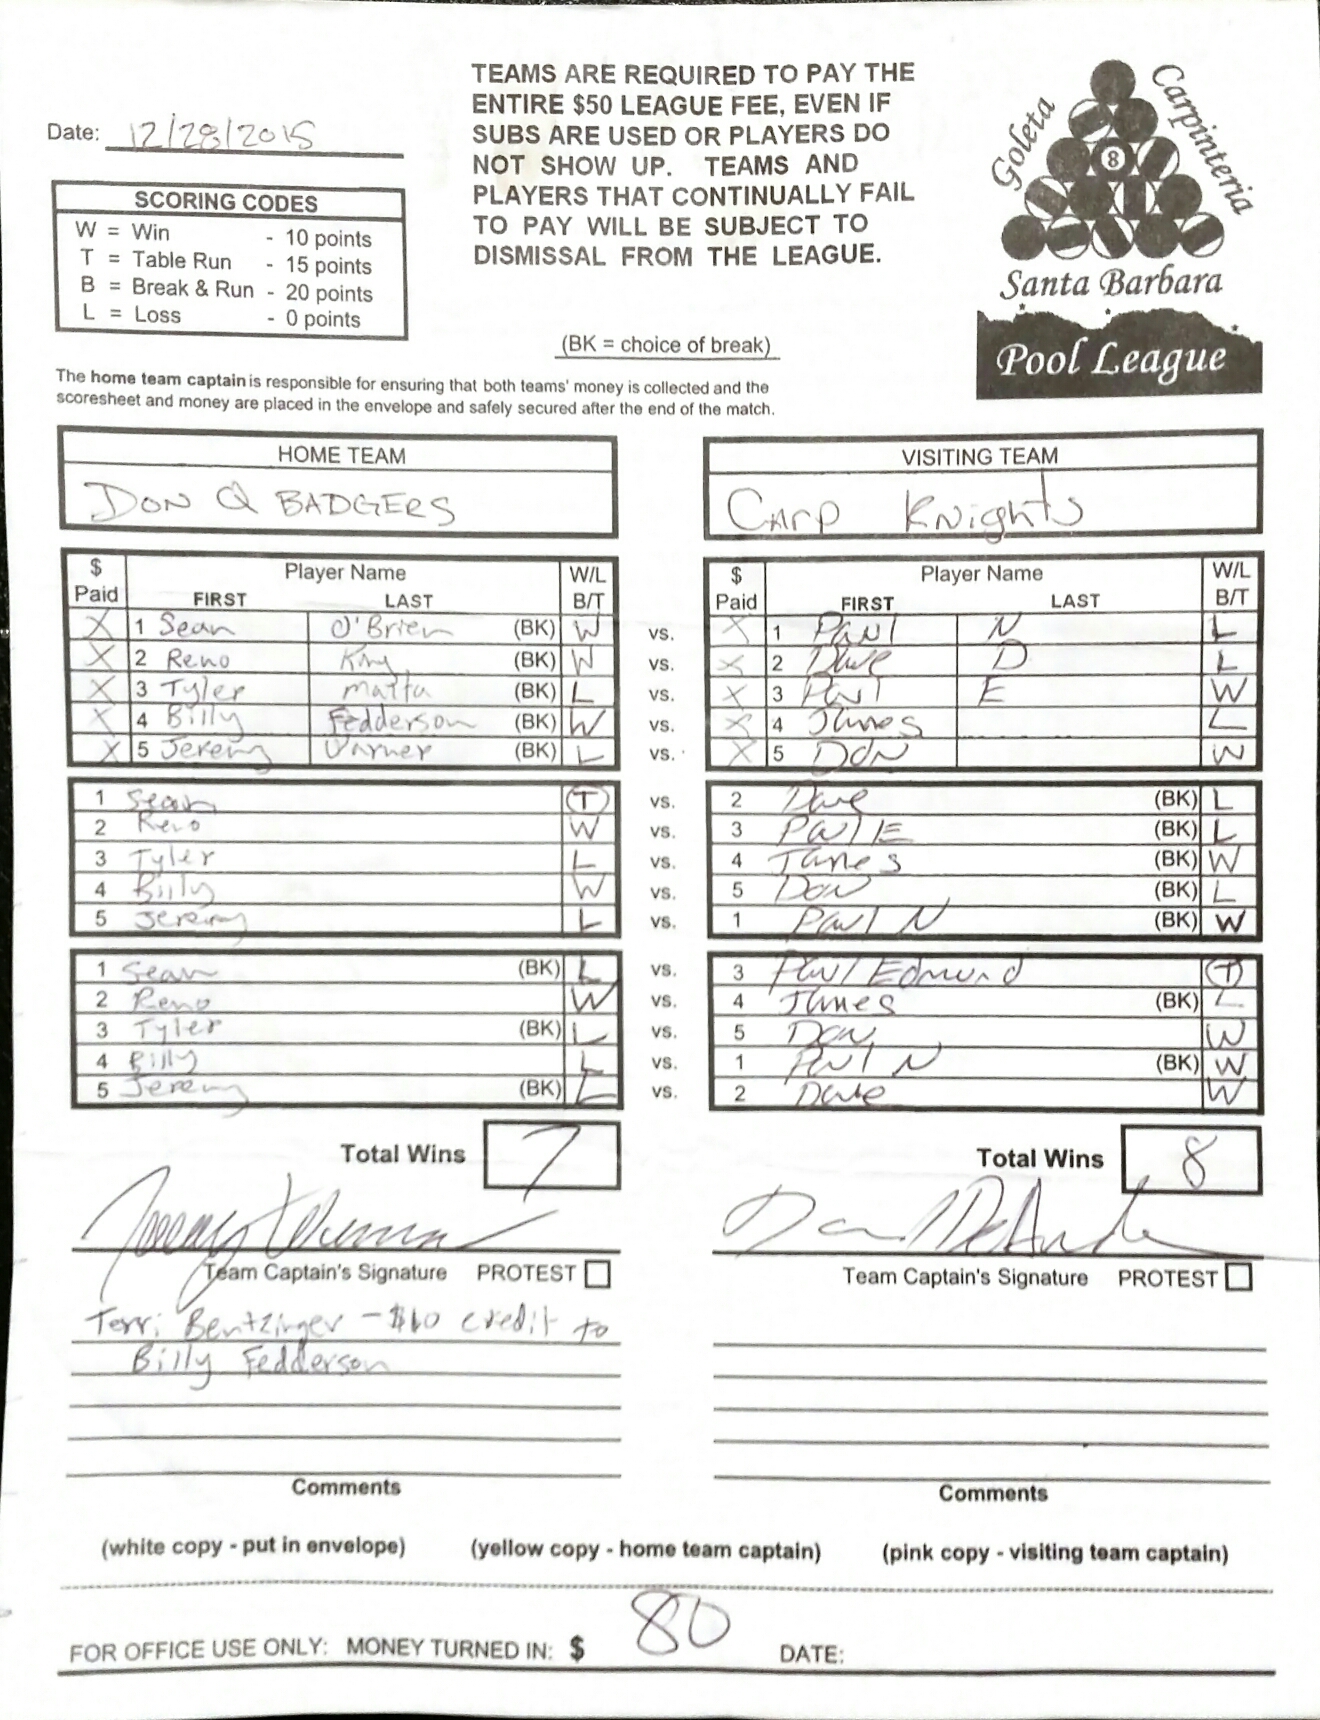 TEAMS ARE REQUIRED TO PAY THE
ENTIRE $50 LEAGUE FEE, EVEN IF
SUBS ARE USED OR PLAYERS DO
NOT SHOW UP. TEAMS AND
PLAYERS THAT CONTINUALLY FAIL
TO PAY WILL BE SUBJECT TO
DISMISSAL FROM THE LEAGUE.
Goleta
Carpinteria
8
Santa Barbara
Pool League
Date: 12/28/2015
SCORING CODES
W = Win - 10 points
T = Table Run - 15 points
B = Break & Run - 20 points
L = Loss - 0 points
(BK = choice of break)
The home team captain is responsible for ensuring that both teams' money is collected and the
scoresheet and money are placed in the envelope and safely secured after the end of the match.
HOME TEAM VISITING TEAM
DON Q BADGERS Carp Knights
$ Paid Player Name FIRST LAST W/L B/T $ Paid Player Name FIRST LAST W/L B/T
X 1 Sean O'Brien (BK) W vs. X 1 Paul N L
X 2 Reno King (BK) W vs. X 2 Dave D L
X 3 Tyler Matta (BK) L vs. X 3 Paul E W
X 4 Billy Fedderson (BK) W vs. X 4 James L
X 5 Jeremy Varner (BK) L vs. X 5 Don W
1 Sean T vs. 2 Dave (BK) L
2 Reno W vs. 3 Paul E (BK) L
3 Tyler L vs. 4 James (BK) W
4 Billy W vs. 5 Don (BK) L
5 Jeremy L vs. 1 Paul N (BK) W
1 Sean (BK) L vs. 3 Paul Edmund T
2 Reno W vs. 4 James (BK) L
3 Tyler (BK) L vs. 5 Don W
4 Billy L vs. 1 Paul N (BK) W
5 Jeremy (BK) L vs. 2 Dave W
Total Wins 7 Total Wins 8
Team Captain's Signature PROTEST Team Captain's Signature PROTEST
Terri Bentzinger - $10 credit to
Billy Fedderson
Comments Comments
(white copy - put in envelope) (yellow copy - home team captain) (pink copy - visiting team captain)
FOR OFFICE USE ONLY: MONEY TURNED IN: $ 80 DATE: